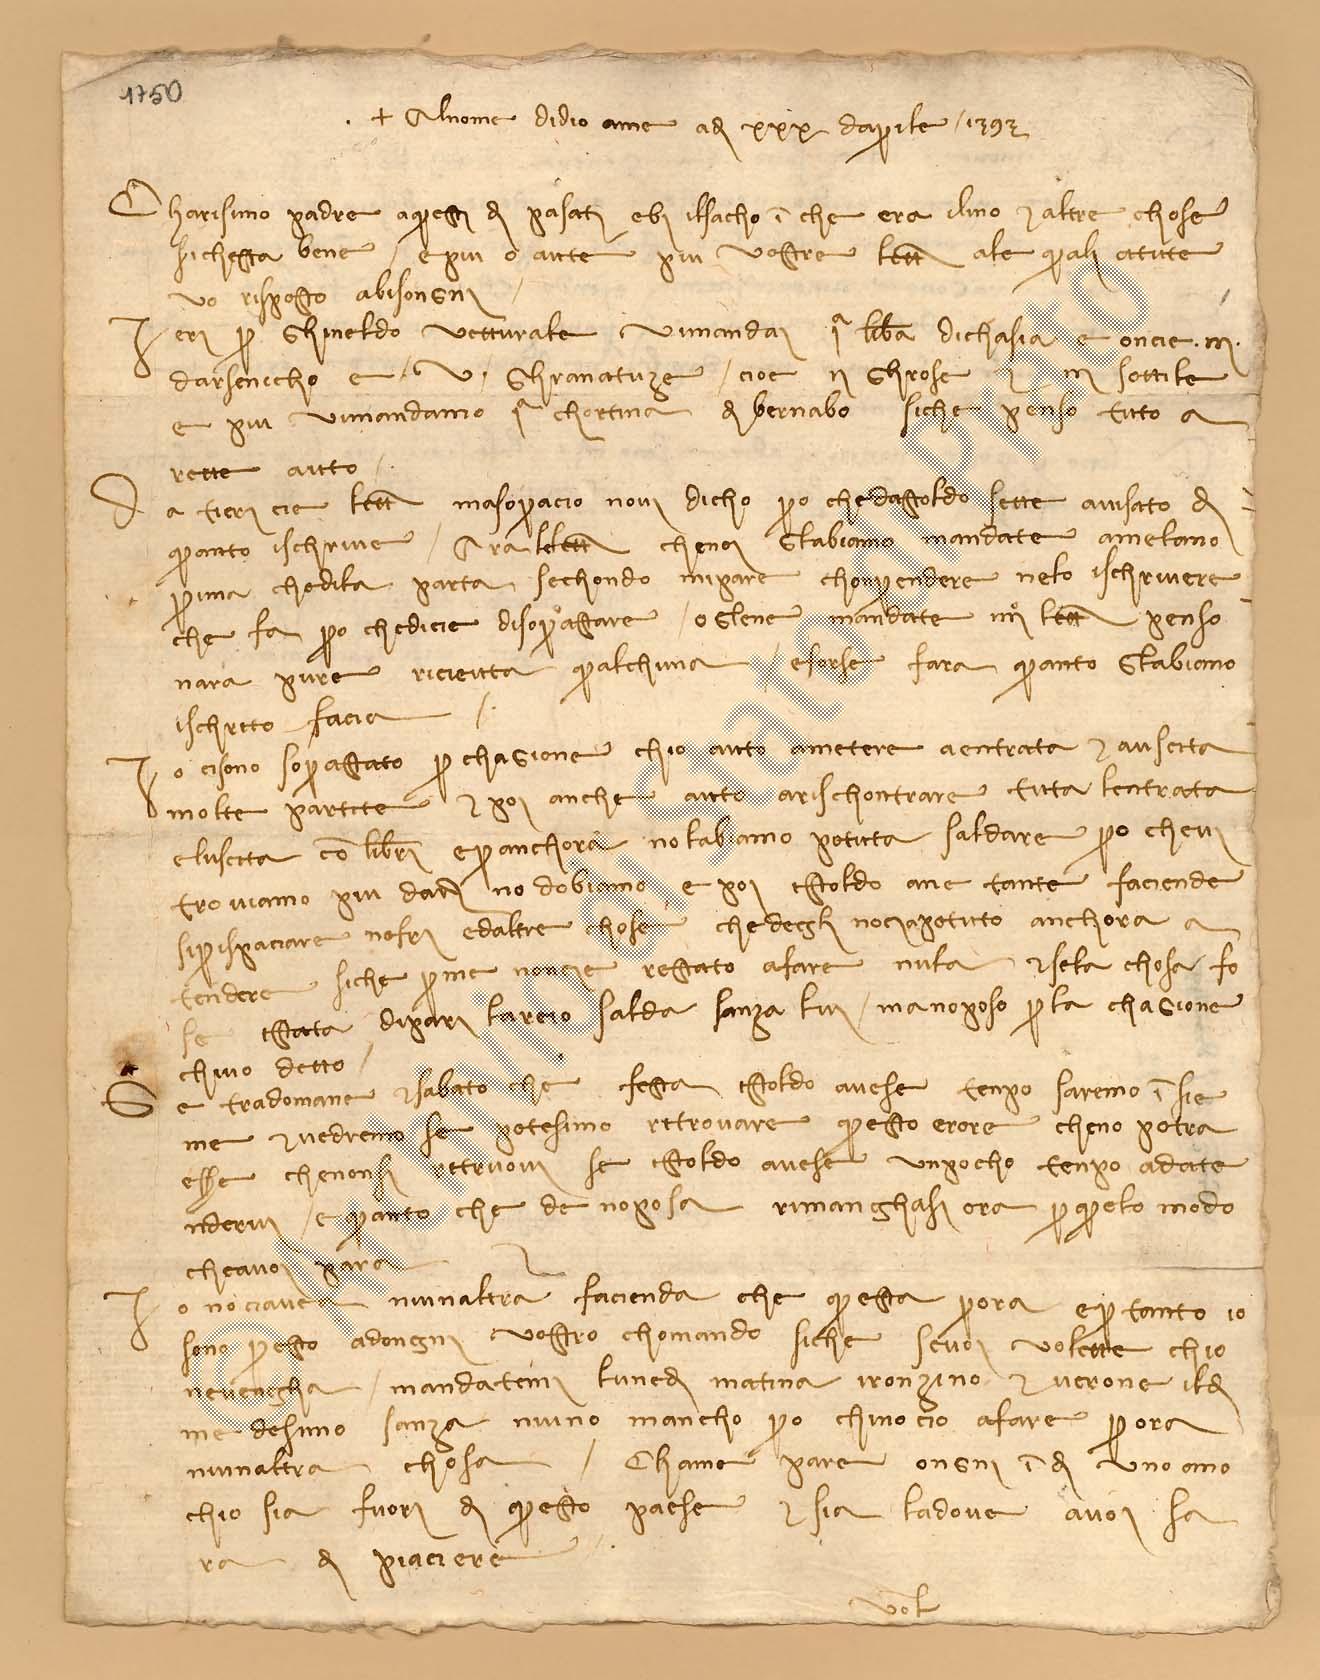 1750
+ Al nome didio ame adj xxx daprile / 1393
Charisimo padre aquesti dj pasati ebi ilsacho i che era ilino e altre chose
sichesta bene / e piu o aute piu vostre lett ale quali atute
vo risposto abisongni /
Ieri p Ghineldo vetturale vi mandai jª libª dichasia e oncie iij
darsenicho e V ghranatuze / cioe ij ghrose e iij sottile
e piu vimandamo jª chortina dj bernabo siche penso tuto a
rette auto /
Da tieri cie lett ma sopracio novi dicho po che dastoldo sette avisato dj
quanto ischrive / Ara le lett chenoi glabiamo mandate a melano
prima chedila parta sechondo mi pare chonprendere nelo ischrivere
che fa po chedicie disoprastare / o glene mandate iiij lett penso
nara pure ricieuta qualchuna / e forse fara quanto glabiamo
ischrito facia /
Io cisono soprastato p chagione chio auto ametere aentrata e auscita
molte partite e poi anche auto arischontrare tuta lentrata
eluscita co libri e panchora nolabiamo potuta saldare po chevi
troviamo piu danj no dobiamo e poi Stoldo ave tante faciende
sipispaciare nofri edaltre chose chedegli nocia potuto anchora a
tendere siche pme noncie restato afare nula e sela chosa fo
se istata dipari lareio salda sanza lui / ma noposo pla chagione
chivo detto /
Se tradomane e sabato che festa Stoldo avese tenpo saremo i sie
me e vedremo se potesimo ritrovare questo erore cheno potra
essere chenonsi ritruovi se Stoldo avese unpocho tenpo adate
ndervi / e quanto che de noposa rimanghasi ora pquelo modo
cheavoi para
Io no ciavea niunaltra facienda che questa pora e ptanto io
sono presto adongni vostro chomando siche sevoi volette chio
nevengha / mandatemi lunedj matina ironzino e verone ildj
medesimo sanza niuno mancho po chinocio afare pora
niunaltra chosa / Chame pare ongni i dj uno ano
chio sia fuori dj questo paese e sia ladove avoi sa
ra dj piaciere /
vol